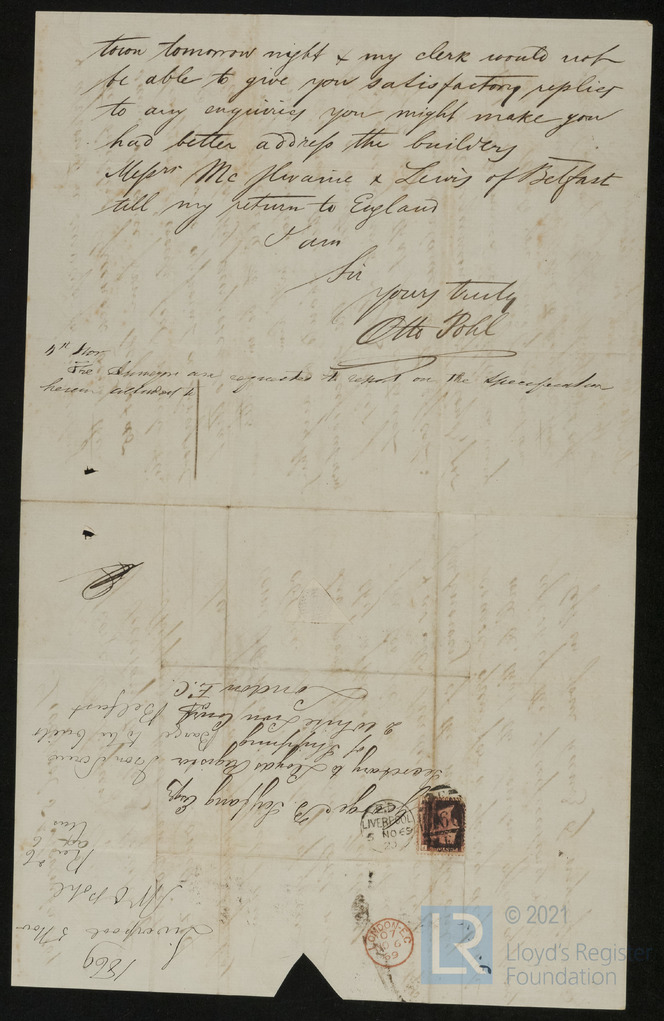 town tomorrow night & my clerk would not
be able to give you satisfactory replies
to any enquiries you might make you
had better address the builders
Messrs McIlwaine & Lewis of Belfast
till my return to England
I am
Sir
yours truly
Otto Pohl
Nov
The Surveyors are requested to report on the specification
herein alluded to
Secretary to Lloyds Register
of Shipping
2 White Lion Court
London E.C.
Iron Screw
Barge to be built
Belfast
1869
Liverpool 5 Nov
O Pohl
LIVERPOOL
5 NO 69
LONDON E.C
NO 6
69
LR
© 2021
Lloyd's Register
Foundation